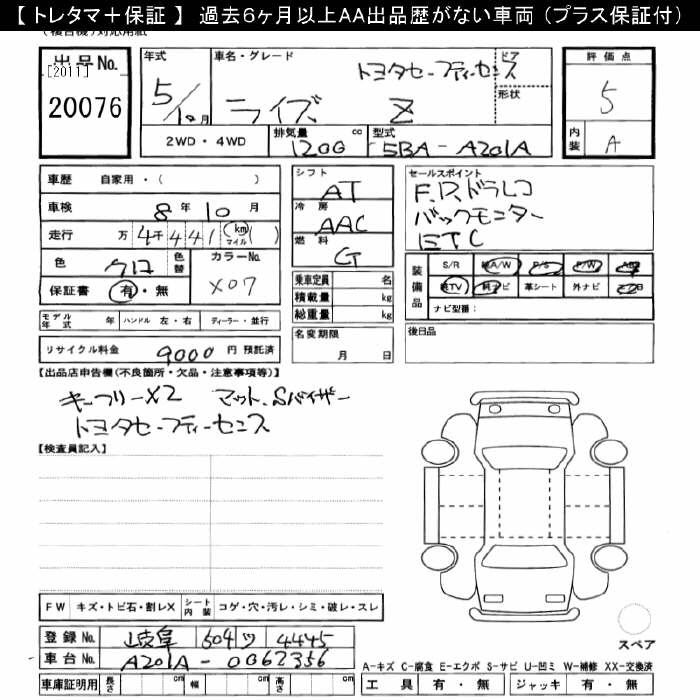 【 トレタマ＋保証 】 過去６ヶ月以上ＡＡ出品歴がない車両（プラス保証付）
出品No.
[2011]
20076
年式
5/12月
車名・グレード
トヨタセーフティーセンス
ライズ Z
ドア
形状
評価点
5
内装
A
2WD・4WD
排気量 1200 cc
型式 5BA-A201A
車歴 自家用・( )
車検 8年10月
走行 万4千441 (km マイル)
色 クロ 色替
カラーNo. X07
保証書 有・無
モデル年式 年 ハンドル 左・右 ディーラー・並行
リサイクル料金 9000円 預託済
シフト AT
冷房 AAC
燃料 G
乗車定員 名
積載量 kg
総重量 kg
名変期限
月 日
セールスポイント
F.R.ドラレコ
バックモニター
ETC
装備品
S/R 純A/W P/S P/W AB
純TV 純ナビ 革シート 外ナビ
ナビ型番：
後日品
【出品店申告欄(不良箇所・欠品・注意事項等)】
キーフリーX2 マット.Sバイザー
トヨタセーフティーセンス
【検査員記入】
FW キズ・トビ石・割レX シート内装 コゲ・穴・汚レ・シミ・破レ・スレ
登録No. 岐阜 504 ツ 4445
車台No. A201A-0062356
車庫証明用 長さ cm 幅 cm 高さ cm
スペア
A−キズ C−腐食 E−エクボ S−サビ U−凹ミ W−補修 XX−交換済
工具 有・無 ジャッキ 有・無